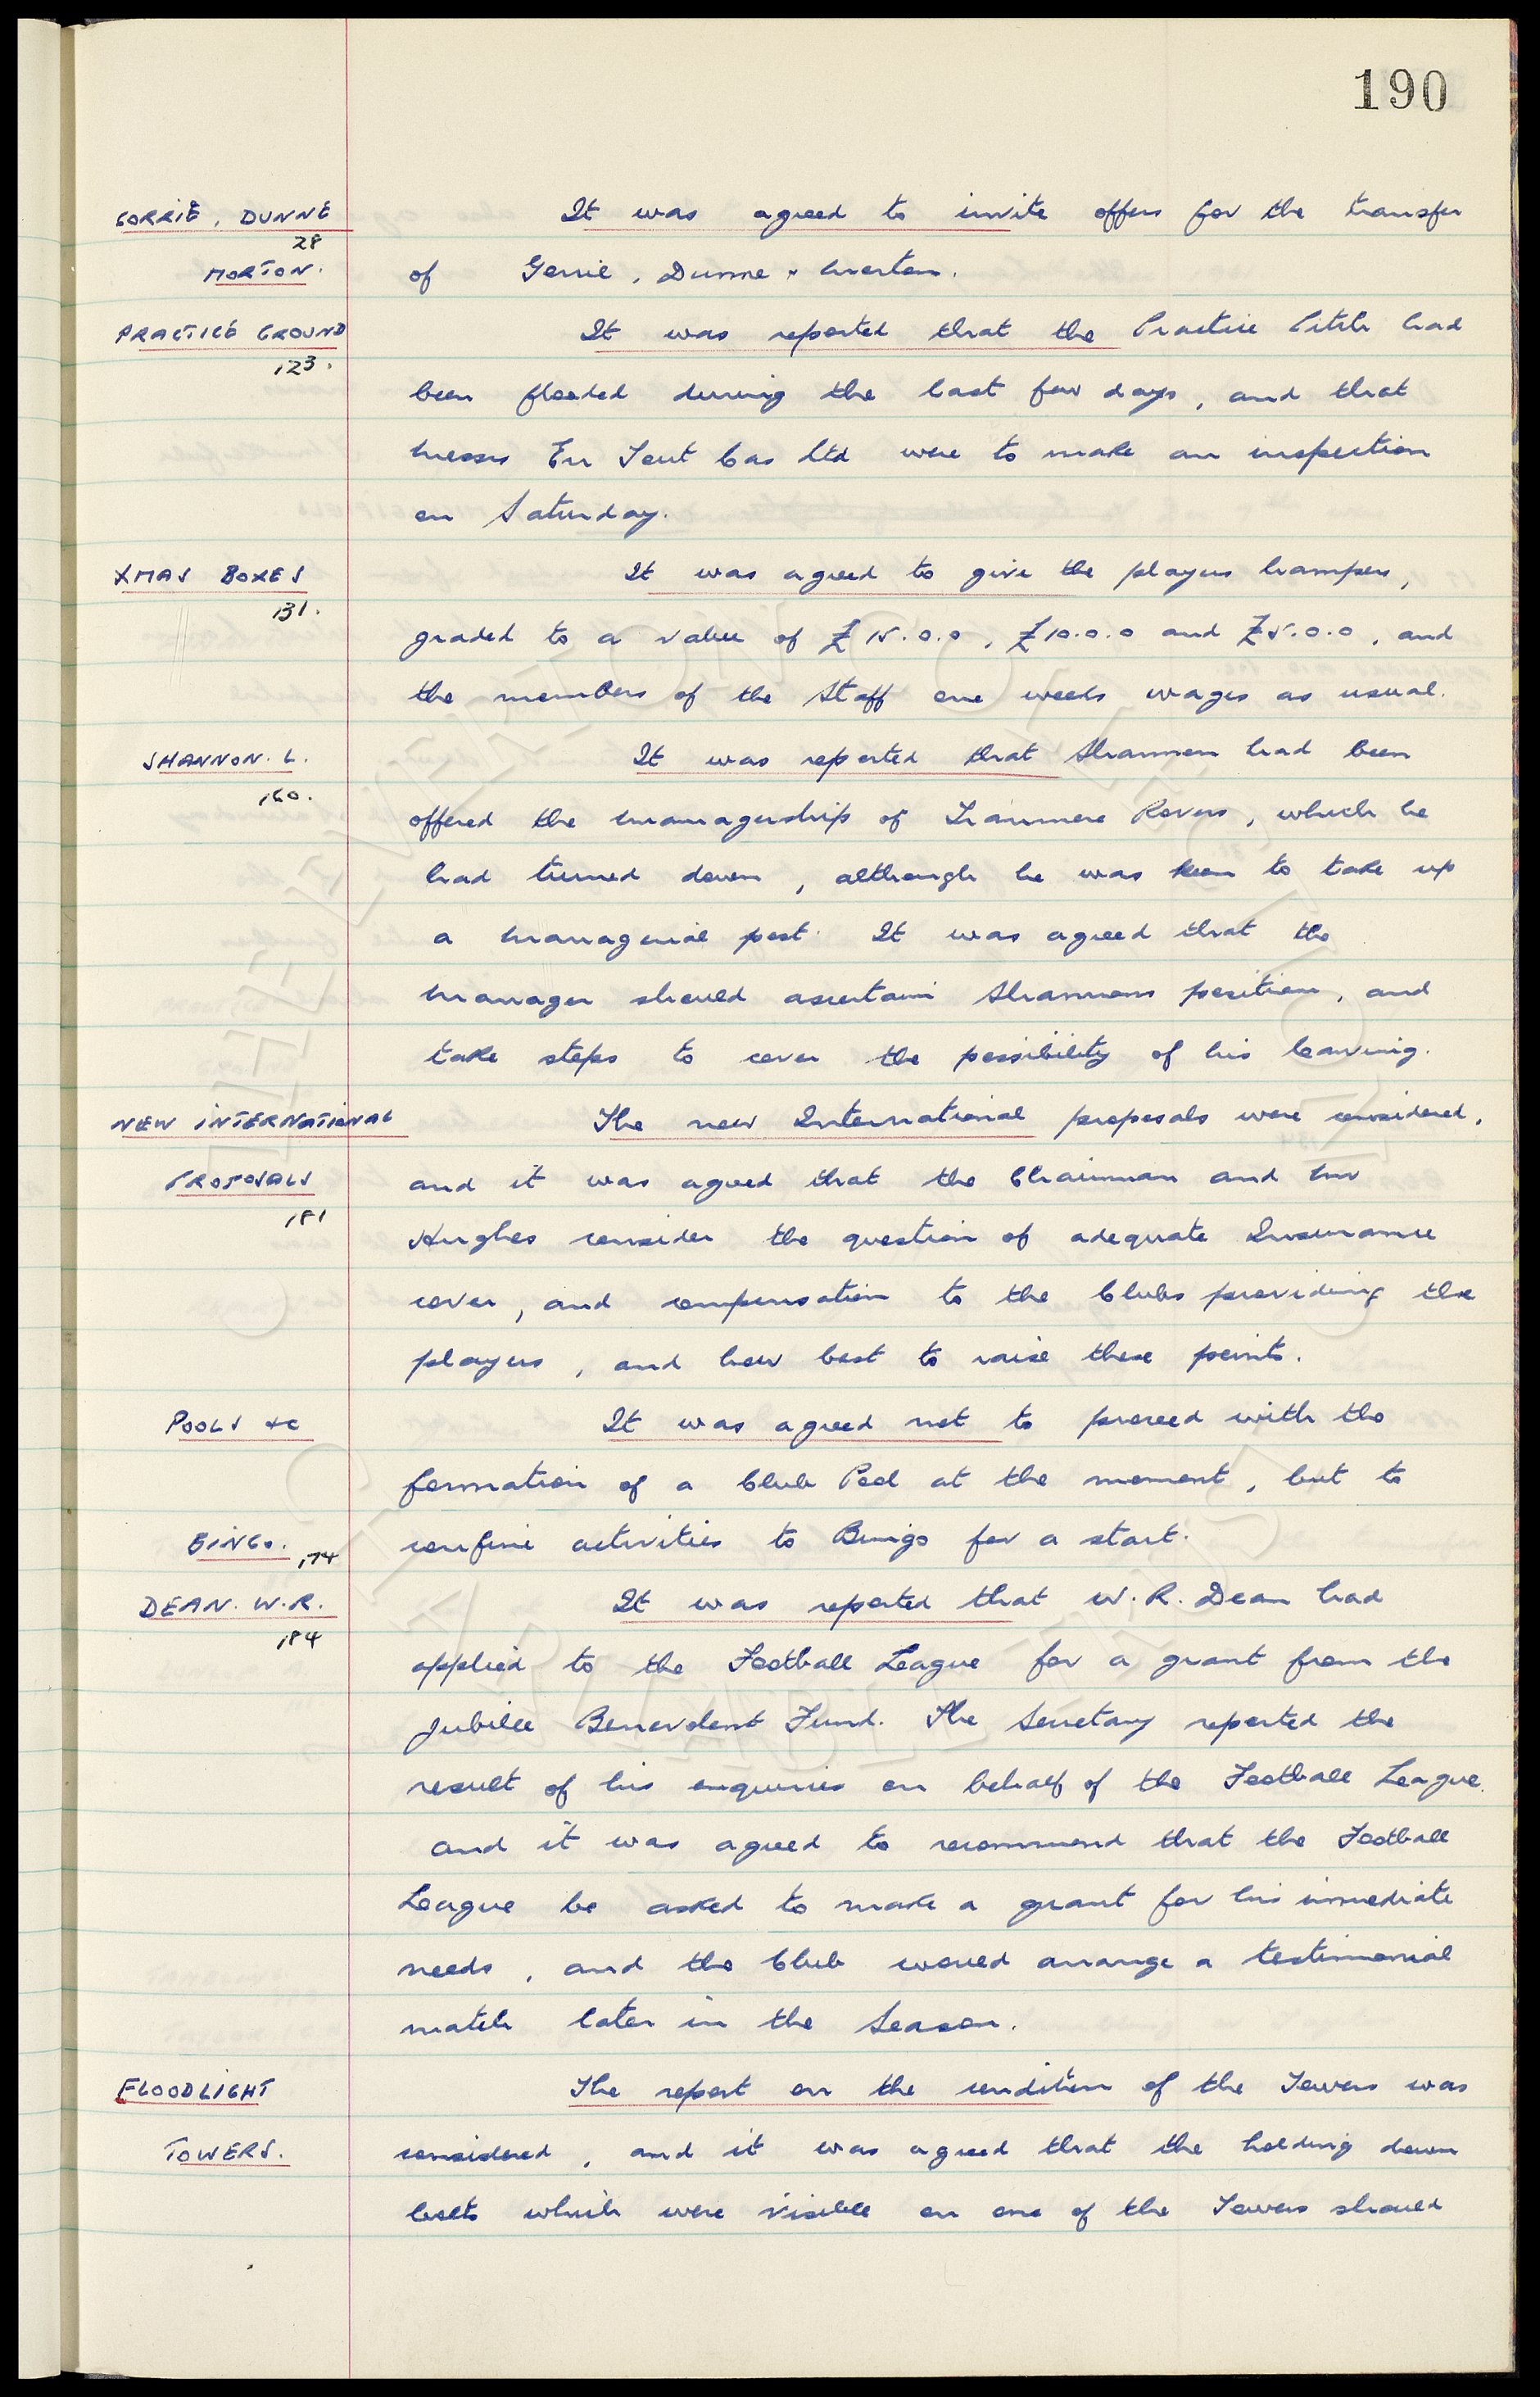 190
GORRIE, DUNNE
28
MORTON.
It was agreed to invite offers for the transfer
of Gorrie, Dunne & Morton.
PRACTICE GROUND
123.
It was reported that the Practice Pitch had
been flooded during the last few days, and that
Messrs En Tout Cas Ltd were to make an inspection
on Saturday.
XMAS BOXES
131.
It was agreed to give the players hampers,
graded to a value of £15.0.0, £10.0.0 and £5.0.0, and
the members of the Staff one weeks wages as usual.
SHANNON. L.
160.
It was reported that Shannon had been
offered the managership of Tranmere Rovers, which he
had turned down, although he was keen to take up
a managerial post. It was agreed that the
Manager should ascertain Shannons position, and
take steps to cover the possibility of his leaving.
NEW INTERNATIONAL
PROPOSALS
181
The new International proposals were considered,
and it was agreed that the Chairman and Mr
Hughes consider the question of adequate Insurance
cover, and compensation to the Clubs providing the
players, and how best to raise these points.
POOLS &c
It was agreed not to proceed with the
formation of a Club Pool at the moment, but to
BINGO. 174
confine activities to Bingo for a start.
DEAN. W.R.
184
It was reported that W.R. Dean had
applied to the Football League for a grant from the
Jubilee Benevolent Fund. The Secretary reported the
result of his enquiries on behalf of the Football League,
and it was agreed to recommend that the Football
League be asked to make a grant for his immediate
needs, and the Club would arrange a testimonial
match later in the Season.
FLOODLIGHT
TOWERS.
The report on the condition of the Towers was
considered, and it was agreed that the holding down
bolts which were visible on one of the Towers should